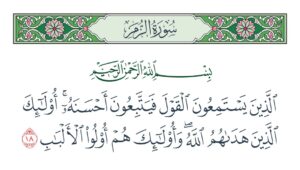 سُورَةُ الزُّمَر
بِسْمِ اللَّهِ الرَّحْمَٰنِ الرَّحِيمِ
ٱلَّذِينَ يَسْتَمِعُونَ ٱلْقَوْلَ فَيَتَّبِعُونَ أَحْسَنَهُۥٓۚ أُو۟لَٰٓئِكَ
ٱلَّذِينَ هَدَىٰهُمُ ٱللَّهُۖ وَأُو۟لَٰٓئِكَ هُمْ أُو۟لُوا۟ ٱلْأَلْبَٰبِ ١٨